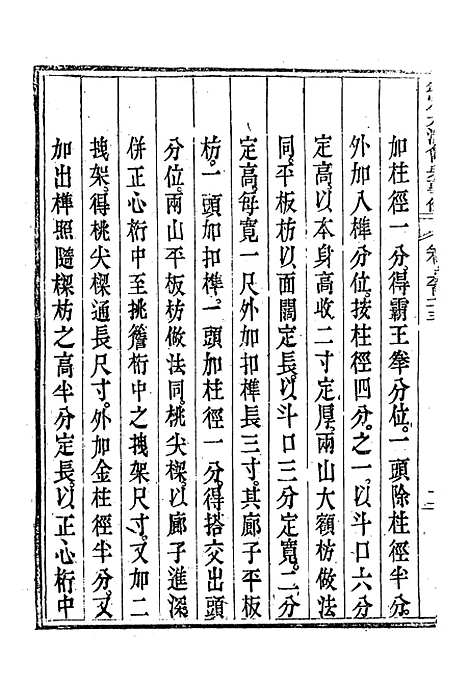 加柱徑一分。得霸王拳分位。一頭除柱徑半分。
外加入榫分位。按柱徑四分。之一。以斗口六分
定高。以本身高收二寸定厚。兩山大額枋做法
同。平板枋以面闊定長。以斗口三分定寬。二分
定高。每寬一尺外加扣榫長三寸。其廊子平板
枋。一頭加扣榫。一頭加柱徑一分。得搭交出頭
分位。兩山平板枋做法同。桃尖樑。以廊子進深
併正心桁中至挑簷桁中之拽架尺寸。又加二
拽架。得桃尖樑通長尺寸。外加金柱徑半分。又
加出榫照隨樑枋之高半分定長。以正心桁中